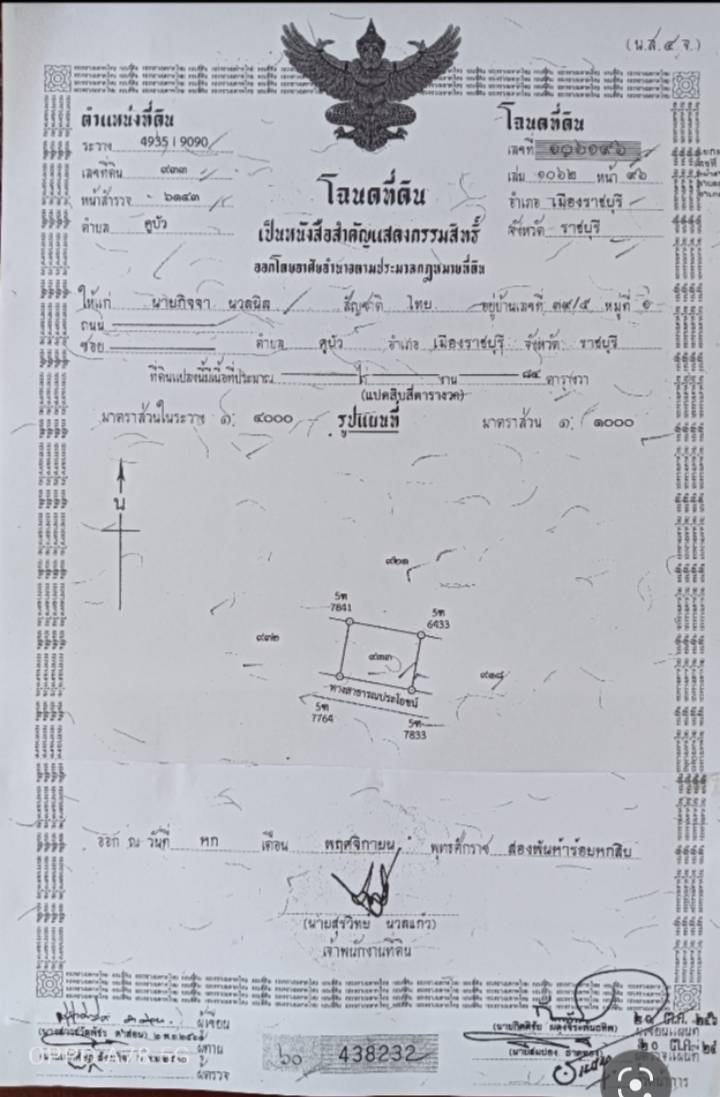 (น.ส.๔ จ.)
ตำแหน่งที่ดิน
ระวาง 4935 I 9090
เลขที่ดิน ๙๓๓
หน้าสำรวจ ๖๑๔๓
ตำบล คูบัว
โฉนดที่ดิน
เลขที่ ๑๐๖๑๙๖
เล่ม ๑๐๖๒ หน้า ๙๖
อำเภอ เมืองราชบุรี
จังหวัด ราชบุรี
โฉนดที่ดิน
เป็นหนังสือสำคัญแสดงกรรมสิทธิ์
ออกโดยอาศัยอำนาจตามประมวลกฎหมายที่ดิน
ให้แก่ นายกิจจา นวลนิล สัญชาติ ไทย อยู่บ้านเลขที่ ๓๙/๕ หมู่ที่ ๑
ถนน
ซอย ตำบล คูบัว อำเภอ เมืองราชบุรี จังหวัด ราชบุรี
ที่ดินแปลงนี้มีเนื้อที่ประมาณ ไร่ งาน ๘๔ ตารางวา
(แปดสิบสี่ตารางวา)
มาตราส่วนในระวาง ๑: ๔๐๐๐ รูปแผนที่ มาตราส่วน ๑: ๑๐๐๐
น
๙๒๑
5ฑ
7841
5ฑ
6433
๙๓๒
๙๓๓
๙๑๘
ทางสาธารณประโยชน์
5ฑ
7764
5ฑ
7833
ออก ณ วันที่ หก เดือน พฤศจิกายน พุทธศักราช สองพันห้าร้อยหกสิบ
(นายสุรวิทย์ นวลแก้ว)
เจ้าพนักงานที่ดิน
ผู้เขียน
ผู้ทาน
ผู้ตรวจ
๖๐ 438232
๒๐ ต.ค.
ผู้เขียนแผนที่
๒๐ ต.ค.
ผู้ตรวจแผนที่